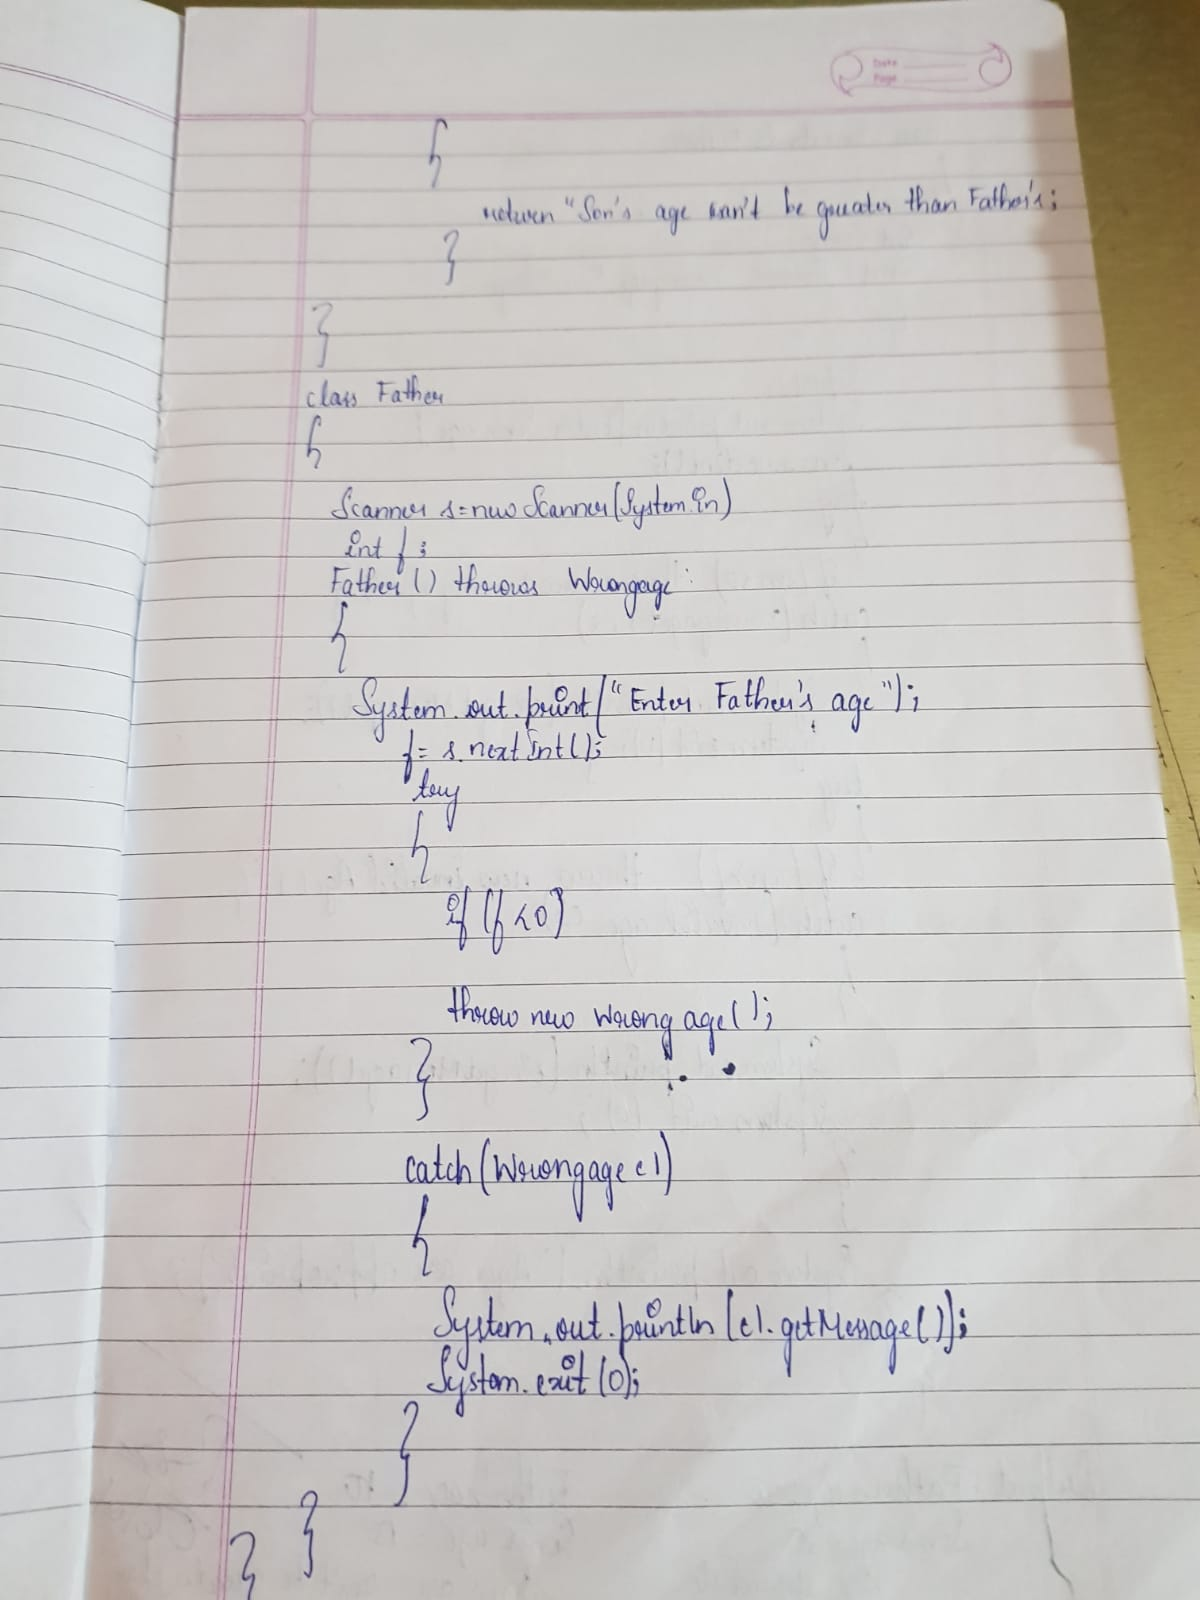 Date
Page
{
return "Son's age can't be greater than Father's;
}
}
class Father
{
Scanner s=new Scanner(System.in)
int f;
Father() throws Wrongage
{
System.out.print("Enter Father's age");
f= s.nextInt();
try
{
if (f<0)
throw new Wrongage();
}
catch(Wrongage e1)
{
System.out.println(e1.getMessage());
System.exit(0);
}
}
}